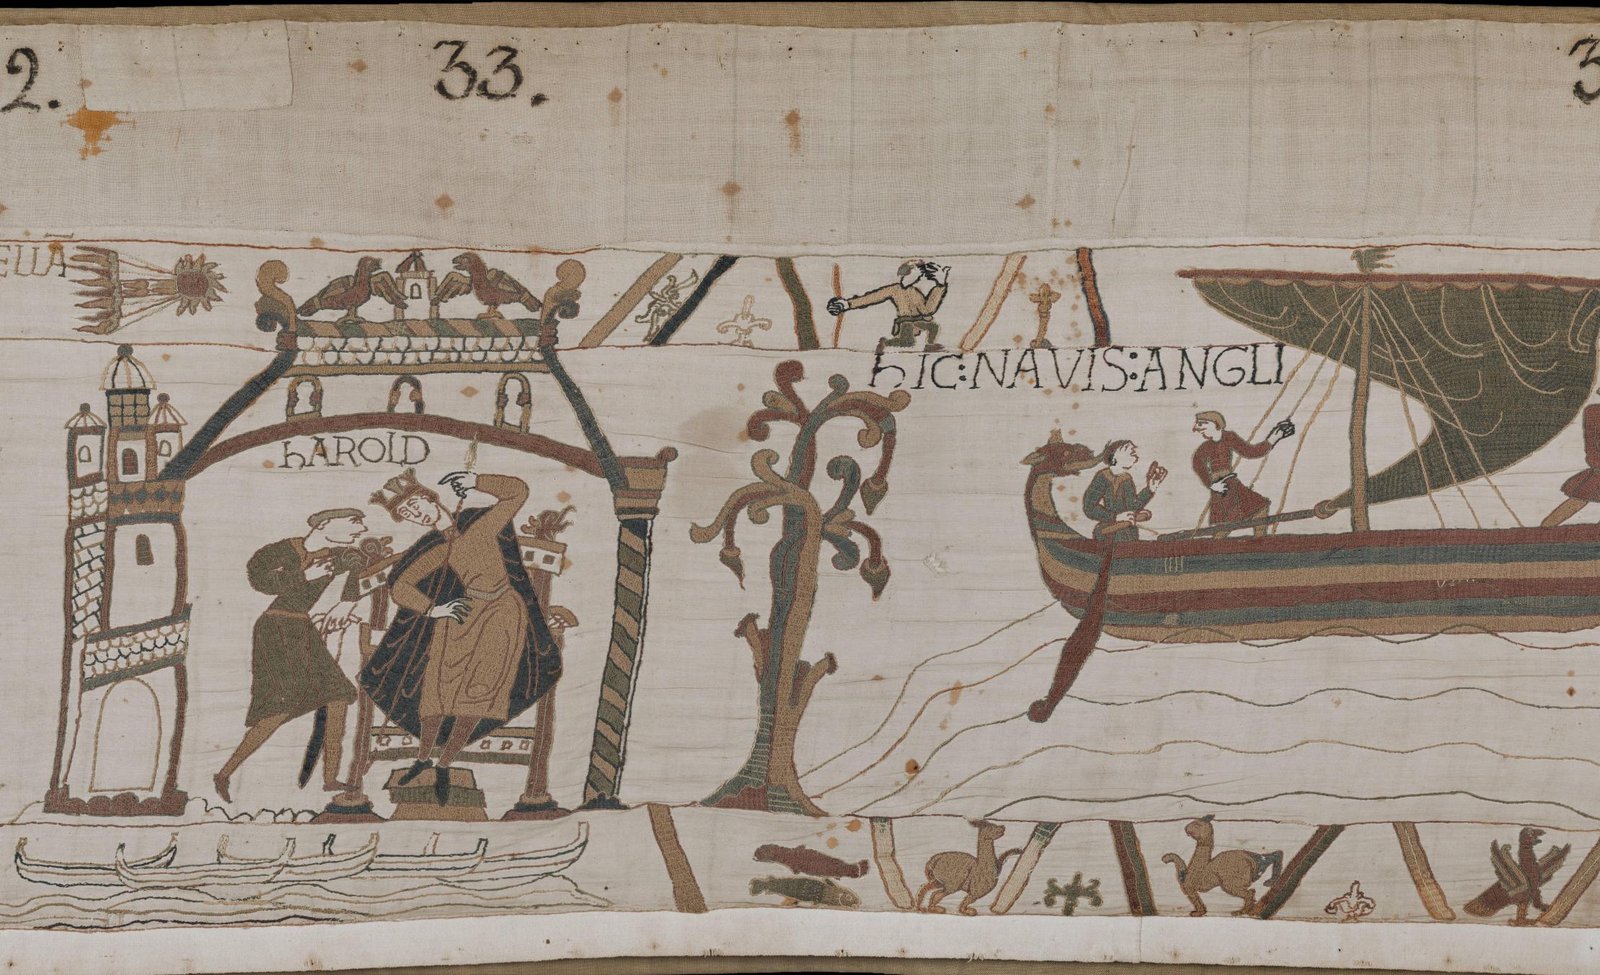 2.
33.
3
ELLĀ
hAROLD
hIC:NAVIS:ANGLI